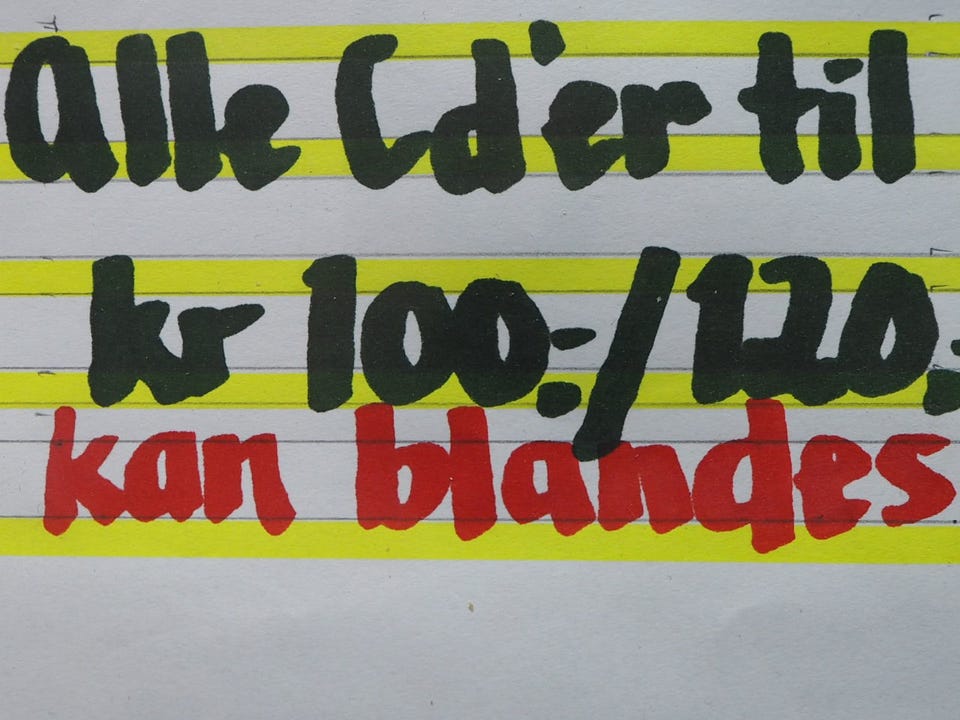 Alle Cd'er til
kr 100.-/120.-
kan blandes